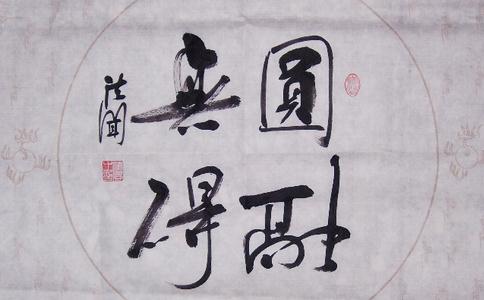 圓融
無碍
法聞